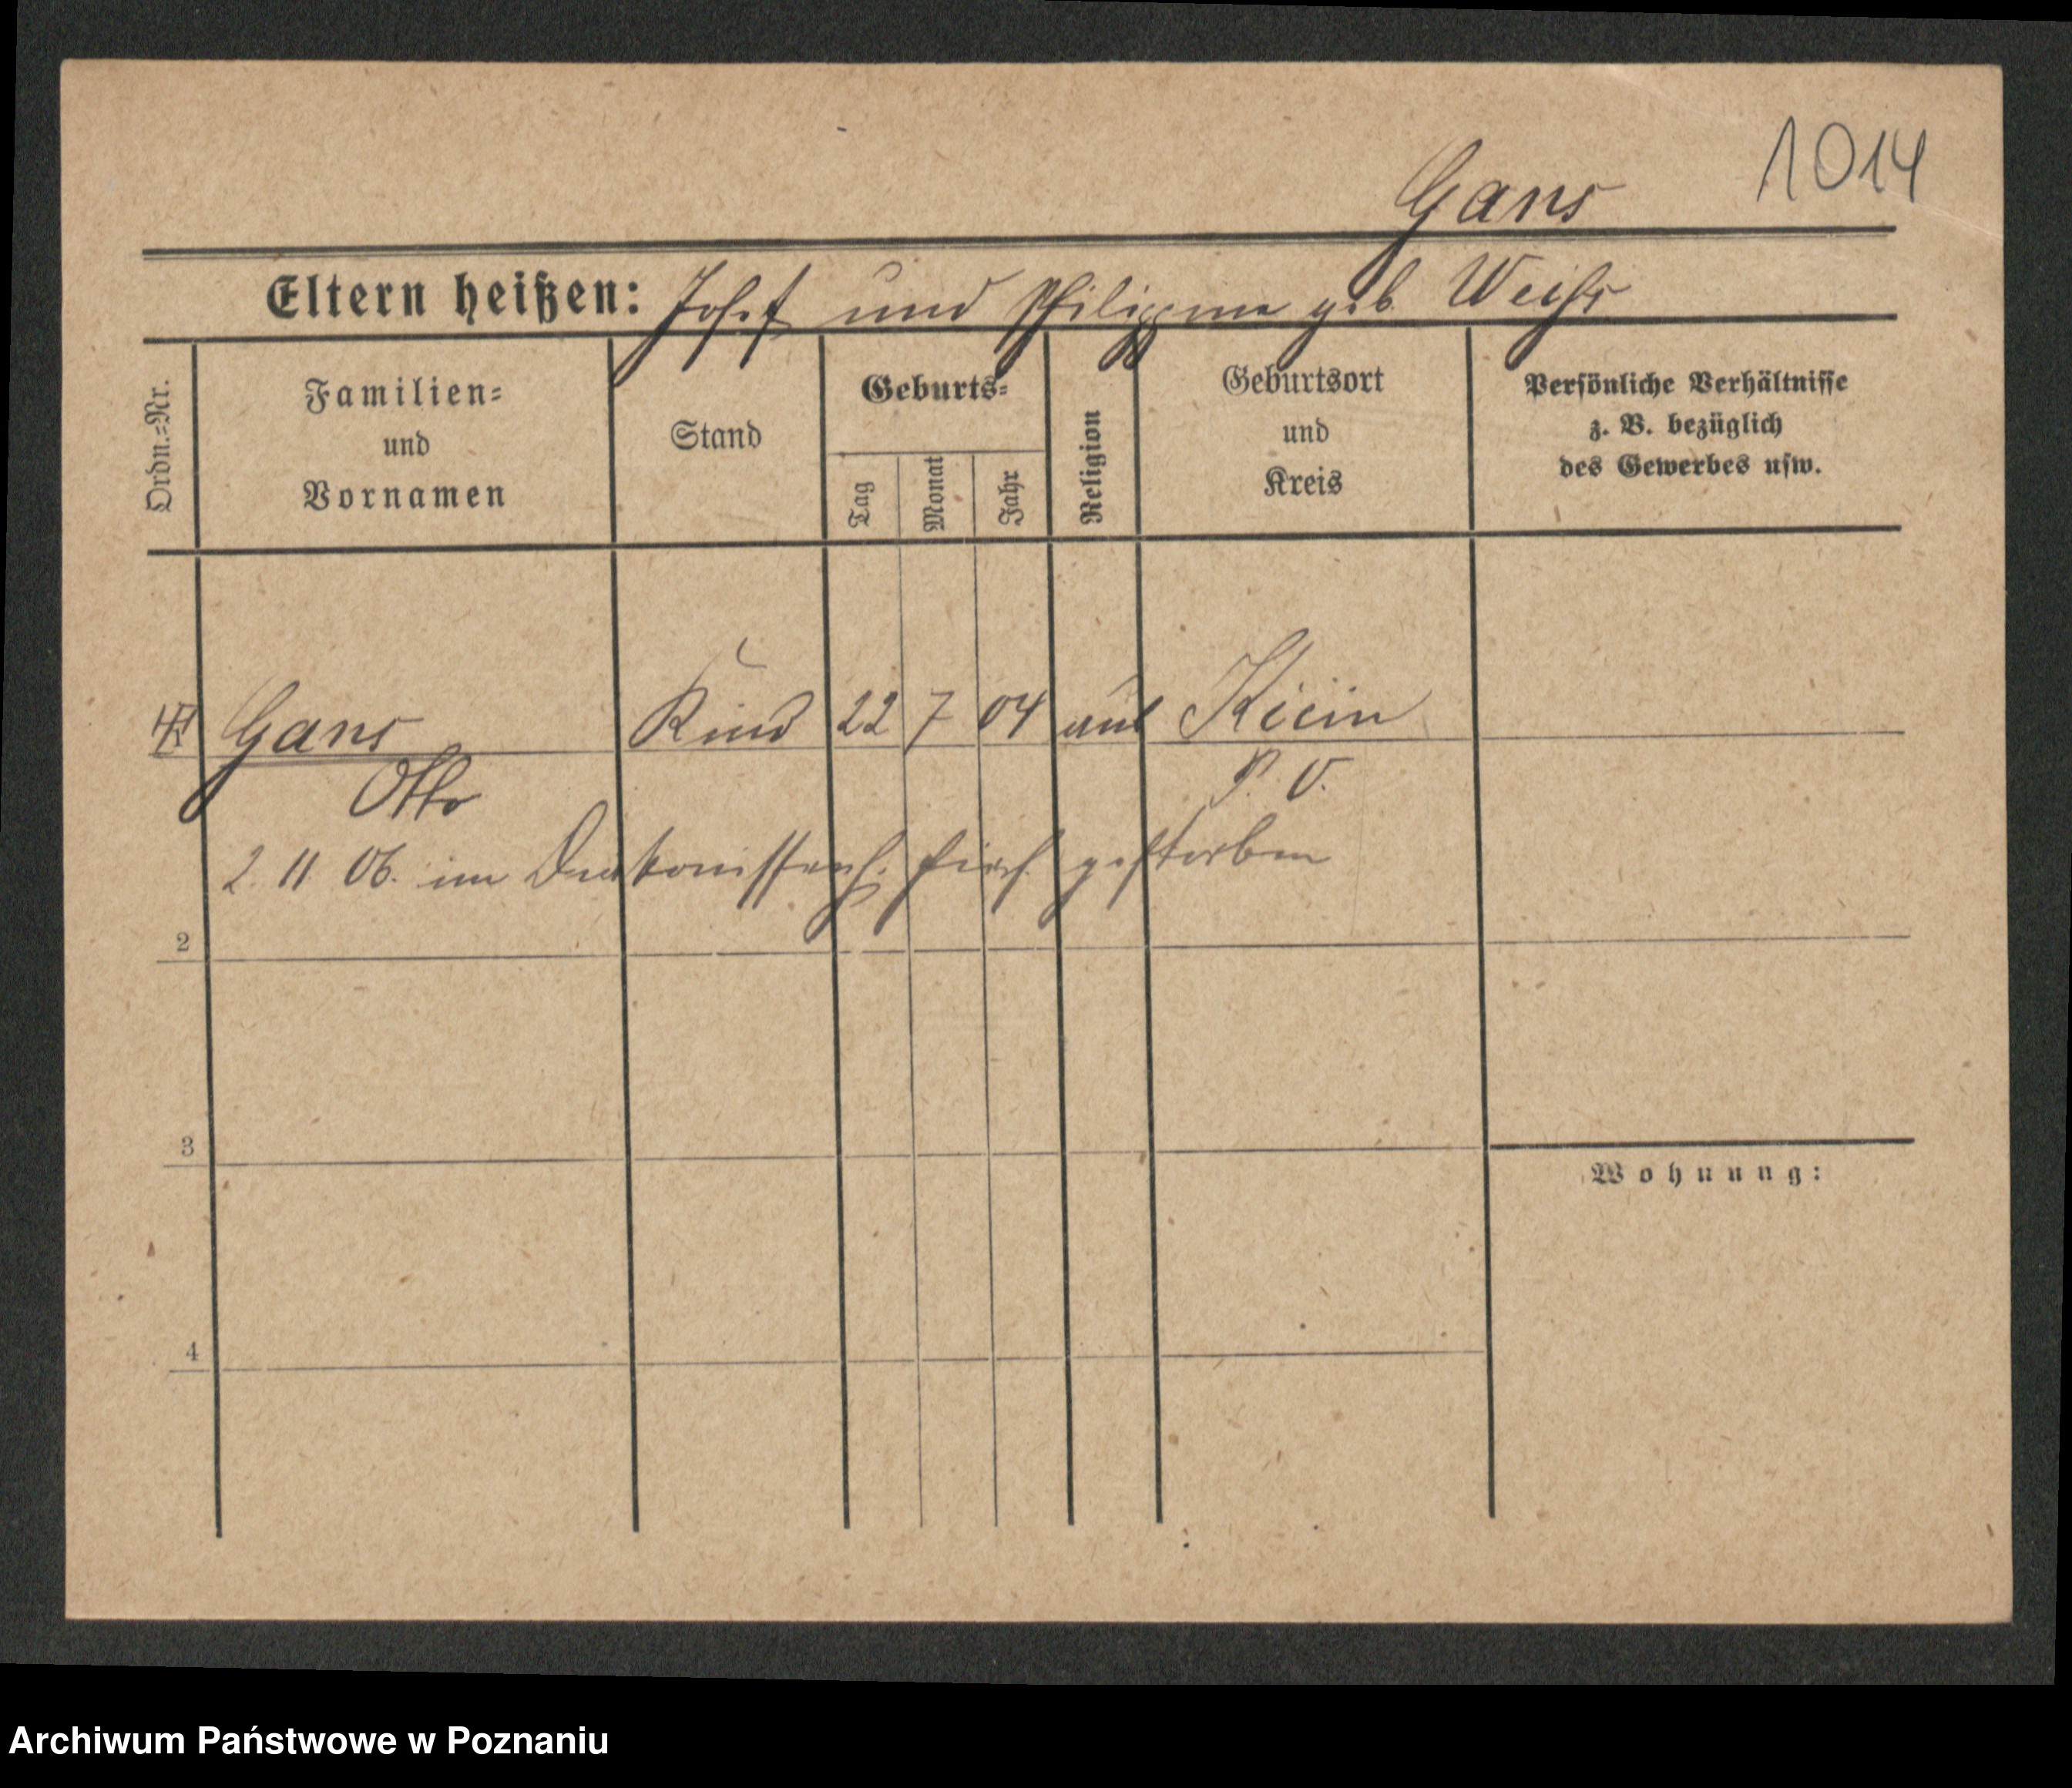 1014
Gans
Eltern heißen: Josef und Philippine geb. Weiss
Ordn.=Nr.
Familien=
und
Vornamen
Stand
Geburts=
Tag
Monat
Jahr
Religion
Geburtsort
und
Kreis
Persönliche Verhältnisse
z. B. bezüglich
des Gewerbes usw.
Gans Kind 22 7 04 Kicin
Otto P. O.
2. 11 06. im Diakonissenh. hier gestorben
2
3
Wohnung:
4
Archiwum Państwowe w Poznaniu